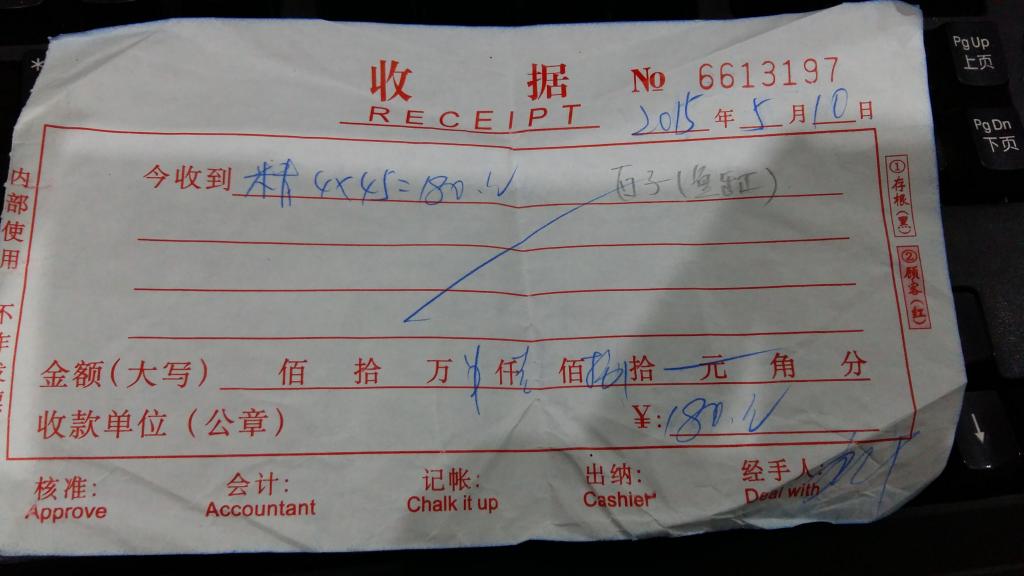 收 据 No 6613197
RECEIPT
2015年5月10日
今收到 4×45=180.
金额(大写) 佰 拾 万 仟 佰 拾 元 角 分
收款单位(公章) ¥:180.
核准: 会计: 记帐: 出纳: 经手人:
Approve Accountant Chalk it up Cashier Deal with
内部使用 不作
①存根(黑)
②顾客(红)
PgUp
上页
PgDn
下页